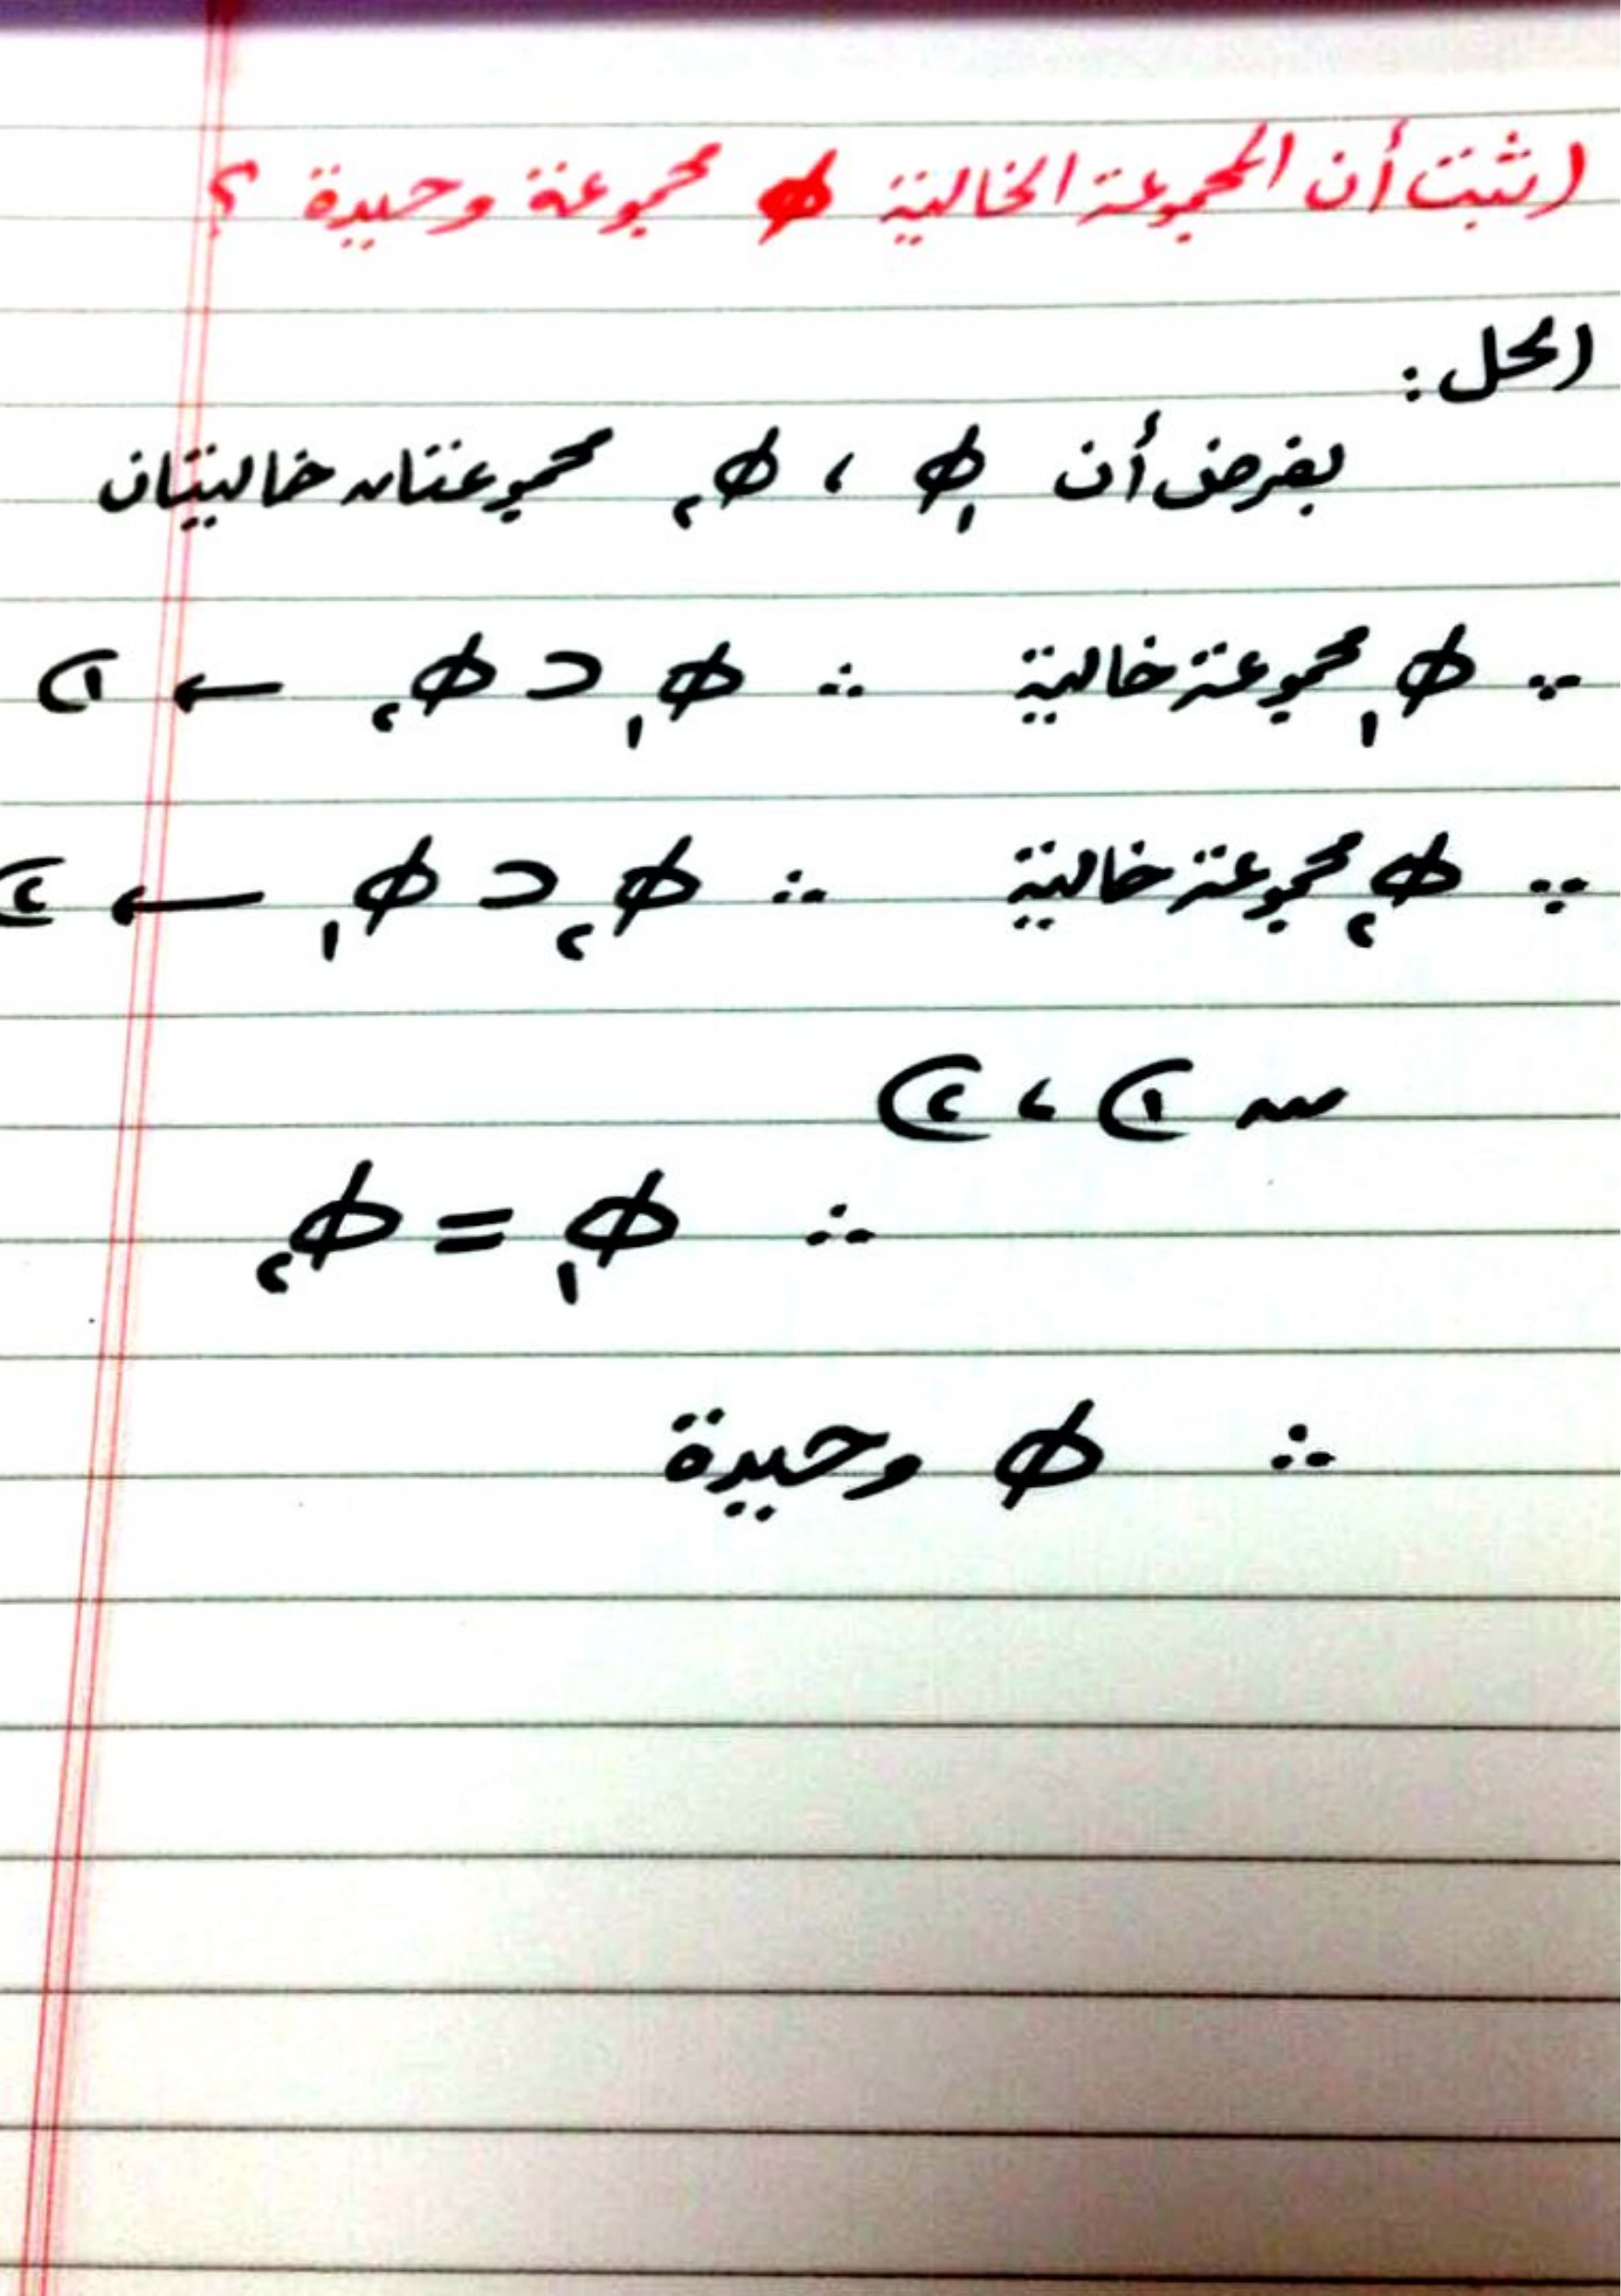 اثبت أن المجموعة الخالية ɸ مجموعة وحيدة ؟
الحل :
بفرض أن ɸ١ ، ɸ٢ مجموعتان خاليتان
∵ ɸ١ مجموعة خالية ∴ ɸ١ ⊂ ɸ٢ ← ①
∵ ɸ٢ مجموعة خالية ∴ ɸ٢ ⊂ ɸ١ ← ②
من ① ، ②
∴ ɸ١ = ɸ٢
∴ ɸ وحيدة